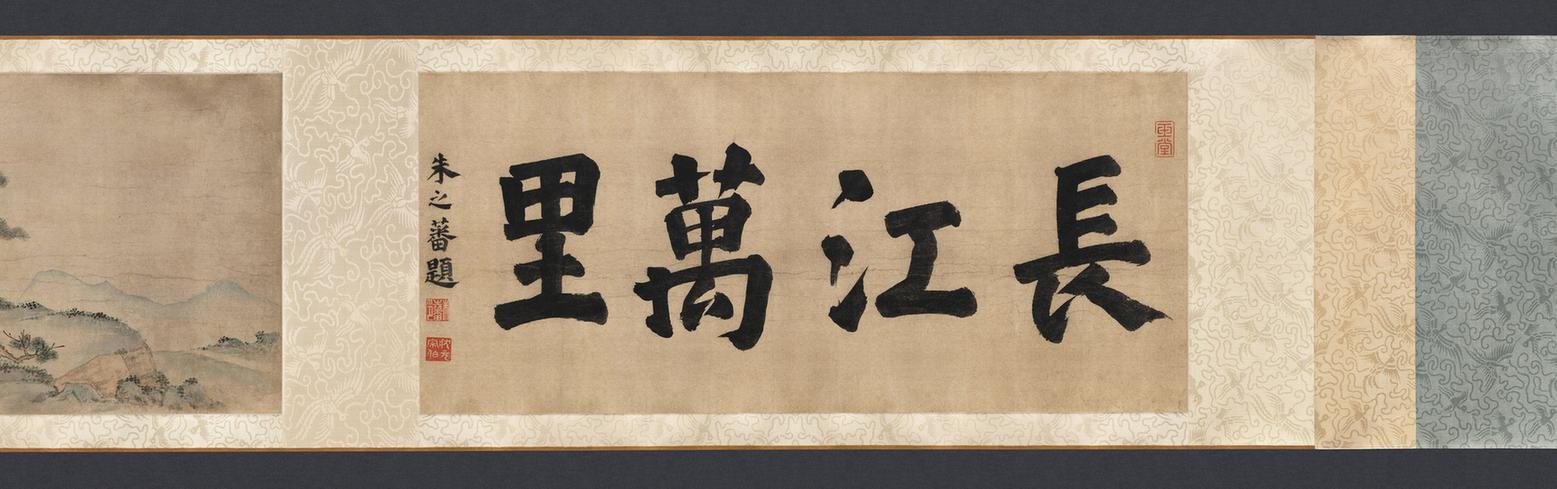 長江萬里
朱之蕃題
玉堂